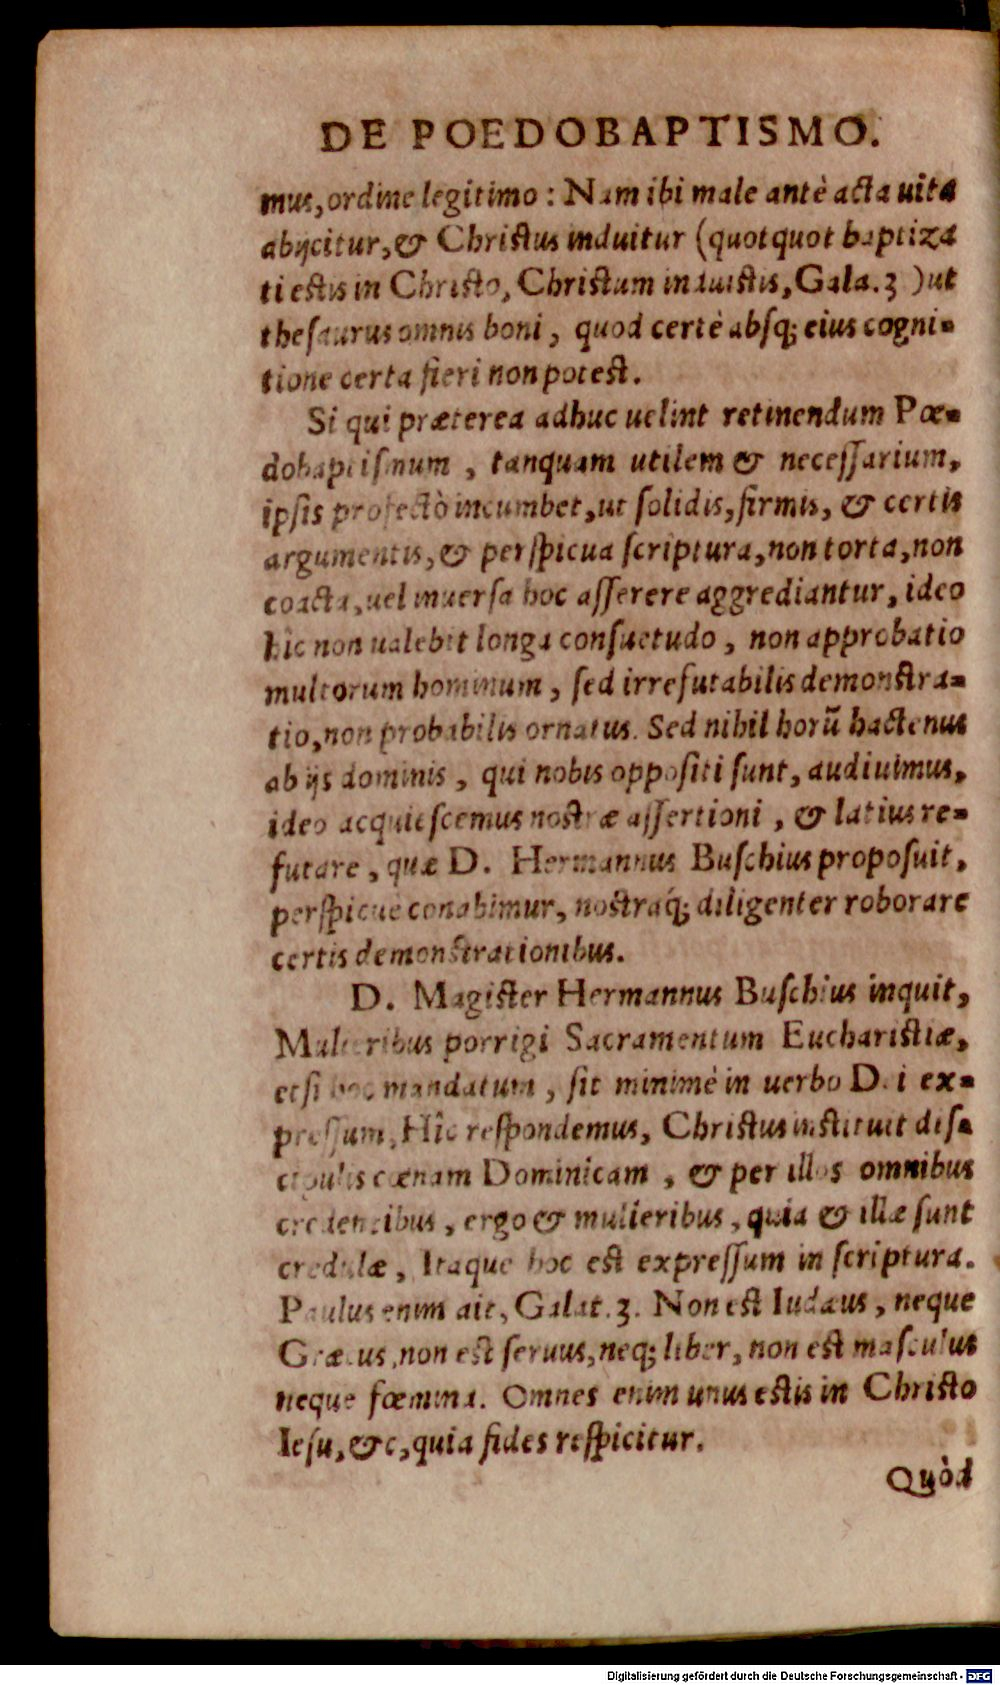 DE POEDOBAPTISMO.
mus, ordine legitimo : Nam ibi male antè acta uita
abijcitur, & Christus induitur (quotquot baptiza
ti estis in Christo, Christum induistis, Gala. 3 ) ut
thesaurus omnis boni , quod certè absq; eius cogni-
tione certa fieri non potest.
Si qui præterea adhuc uelint retinendum Pœ-
dobaptismum , tanquam utilem & necessarium,
ipsis profectò incumbet, ut solidis, firmis, & certis
argumentis, & perspicua scriptura, non torta, non
coacta, uel inuersa hoc asserere aggrediantur, ideo
hic non ualebit longa consuetudo , non approbatio
multorum hominum , sed irrefutabilis demonstra-
tio, non probabilis ornatus. Sed nihil horũ hactenus
ab ijs dominis , qui nobis oppositi sunt, audiuimus,
ideo acquiescemus nostræ assertioni , & latius re-
futare , quæ D. Hermannus Buschius proposuit,
perspicue conabimur, nostraq́; diligenter roborare
certis demonstrationibus.
D. Magister Hermannus Buschius inquit,
Mulieribus porrigi Sacramentum Eucharistiæ,
etsi hoc mandatum , sit minimè in uerbo D. i ex-
pressum, Hîc respondemus, Christus instituit dis-
cipulis cœnam Dominicam , & per illos omnibus
credentibus , ergo & mulieribus , quia & illæ sunt
credulæ , Itaque hoc est expressum in scriptura.
Paulus enim ait, Galat. 3. Non est Iudæus , neque
Græcus, non est seruus, neq; liber, non est masculus
neque fœmina. Omnes enim unus estis in Christo
Iesu, &c, quia fides respicitur.
Quòd
Digitalisierung gefördert durch die Deutsche Forschungsgemeinschaft - DFG